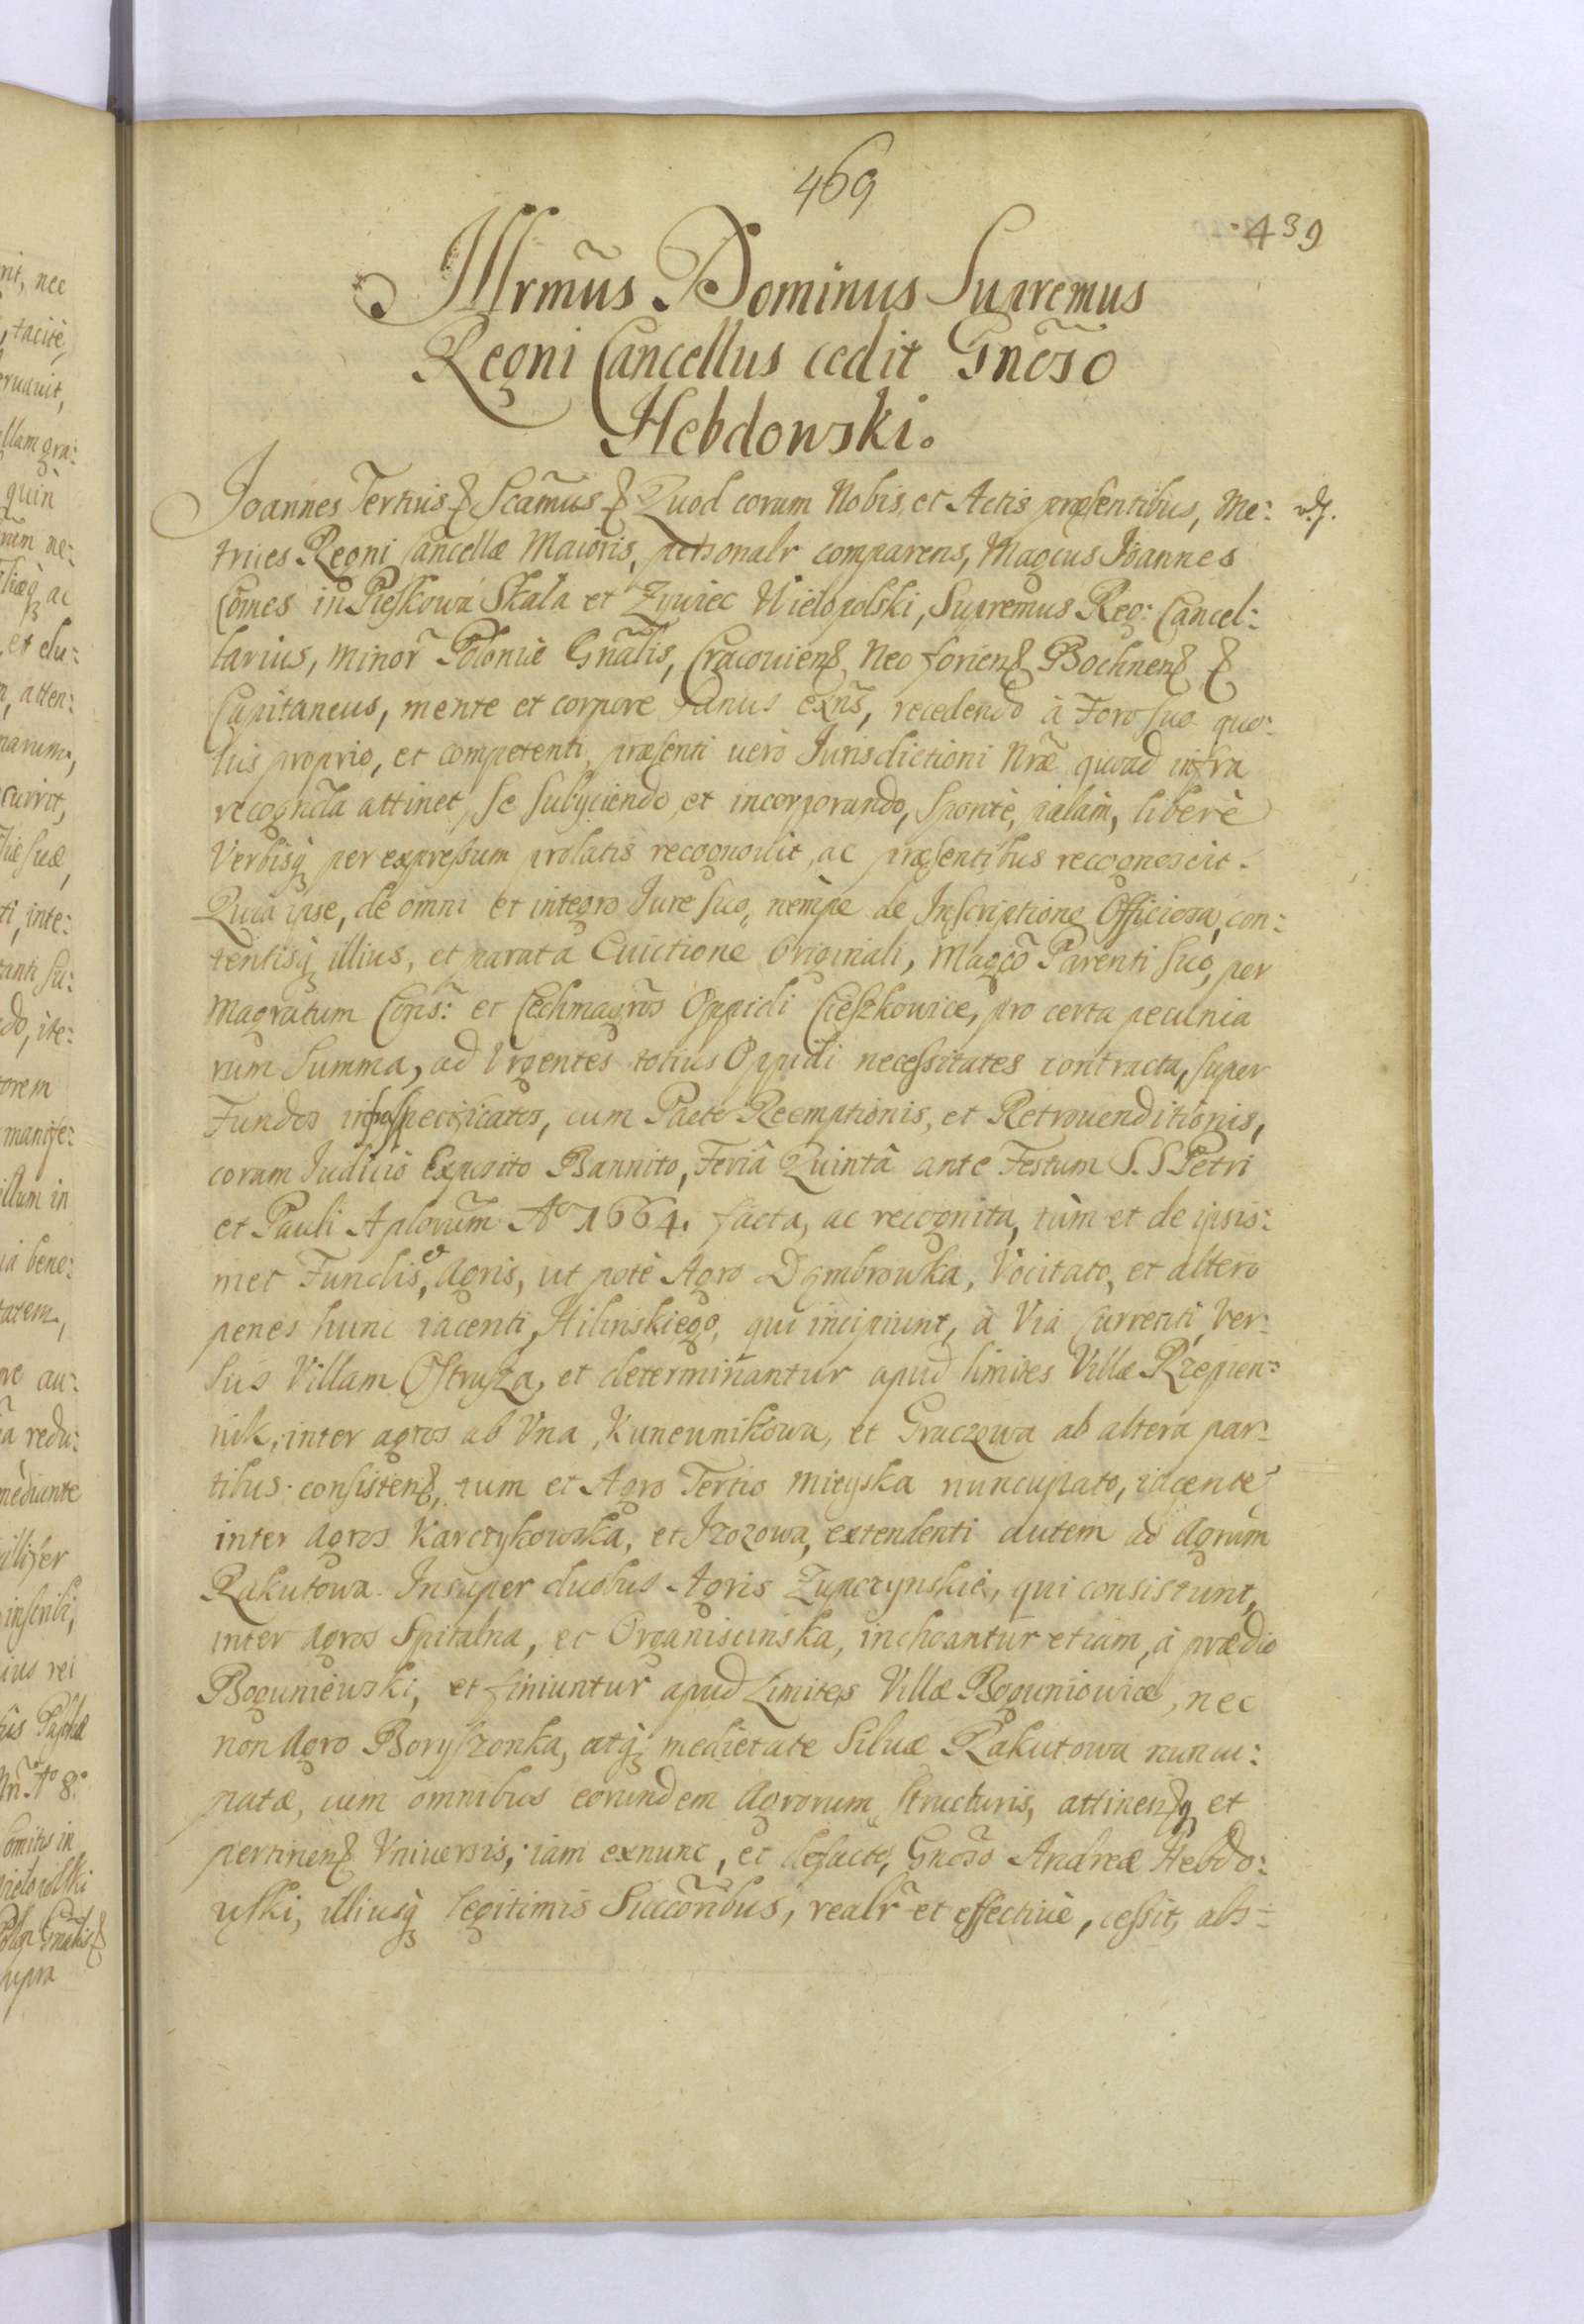 469
439
Jllrmũs Dominus Supremus
Regni Cancellus cedit Gnõso
Hebdowski.
Joannes Tertius & Scãmus & Quod coram Nobis, et Actis præsentibus, Me:
trices Regni Cancellæ Maioris, personalr comparens, Magcus Joannes
Cõmes in Pieskowa Skala et Zywiec Wielopolski, Supremus Reg: Cancel:
larius, minor̃ Poloniæ Gñalis, Cracouien& Neoforien& Bochnen& &
Capitaneus, mente et corpore sanus exñs, recedendo à Foro suo quo:
uis proprio, et competenti, præsenti uerò Jurisdictioni Nræ quoad infra
recognita attinet, se subyciendo, et incorporando, sponte, palàm, liberè
Verbisq per expressum prolatis recognouit, ac præsentibus recognoscit.
Quia ipse, de omni et integro Jure suo, nempe de Inscriptione Officiosa, con:
tentisq illius, et parata Euictione Originali, Magco Parenti suo, per
Magratum Cons: et Cechmagros Oppidi Cieszkowice, pro certa pecunia
rum Summa, ad Vrgentes totius Oppidi necessitates contracta, super
Fundos infraspecificatos, cum Pacto Reemptionis, et Retrouenditionis,
coram Judicio Exposito Bannito, Feriâ Quintâ ante Festum S.S Petri
et Pauli Aplorum A° 1664. facta, ac recognita, tùm et de ipsis:
met Fundis, Agris, ut potè Agro Dąmbrowka, Vocitato, et altero
penes hunc iacenti, Hilinskiego, qui incipiunt, à Via currenti, Ver:
sus Villam Ostrusza, et determinantur apud limites Villæ Rzepien:
nik, inter agros ab Vna, Kuneunikowa, et Graczowa ab altera par:
tibus consisten&, tum et Agro Tertio mieyska nuncupato, iacente
inter Agros Karczykowska, et Jzozowa, extendenti autem ad Agrum
Rakutowa. Insuper duobus Agris Zupczynskie, qui consistunt,
inter Agros Spitalna, et Organiscinska, inchoantur etiam, à prædio
Boguniewski, et finiuntur apud Limites Villæ Boguniowicæ, nec
non Agro Boryszonka, atq medietate Siluæ Rakutowa nuncu:
patæ, cum omnibus eorundem Agrorum Structuris, attinen&q et
pertinen& Vniuersis; iam exnunc, et defacto, Gnoso Andreæ Hebdo:
wski, illiusq legitimis Succõribus, realr et effectiuè, cessit, abs: